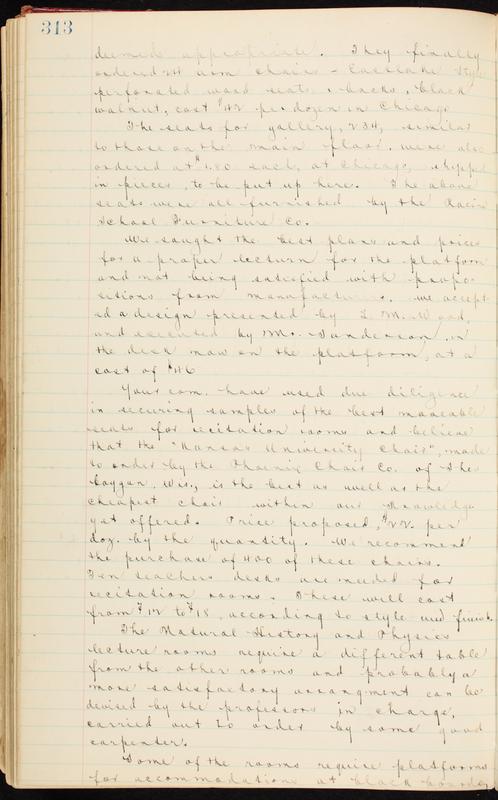 313
deemed appropriate. They finally
ordered 24 arm chairs - Eastlake style
perforated wood seats & backs, black
walnut, cost $42 per dozen in Chicago
The seats for gallery, 234, similar
to those on the main floor, were also
ordered at $1.80 each, at Chicago, shipped
in pieces, to be put up here. The above
seats were all furnished by the Racine
School Furniture Co.
We sought the best plans and prices
for a proper lecturn for the platform
and not being satisfied with propo-
sitions from manufacturers, we accept-
ed a design presented by L. M. Wood,
and executed by Mr. Sunderson, in
the desk now on the platform, at a
cost of $46
Your com. have used due diligence
in securing samples of the best moveable
seats for recitation rooms and believe
that the "Kansas University Chair", made
to order by the Phoenix Chair Co. of She
boygan, Wis., is the best as well as the
cheapest chair within our knowledge
yet offered. Price proposed, $22. per
doz. by the quantity. We recommend
the purchase of 400 of these chairs.
Ten teachers desks are needed for
recitation rooms. These will cost
from $12 to $18, according to style and finish.
The Natural History and Physics
lecture rooms require a different table
from the other rooms and probably a
more satisfactory arrangment can be
devised by the professors in charge,
carried out to order by some good
carpenter.
Some of the rooms require platforms
for accommodations at black boards,